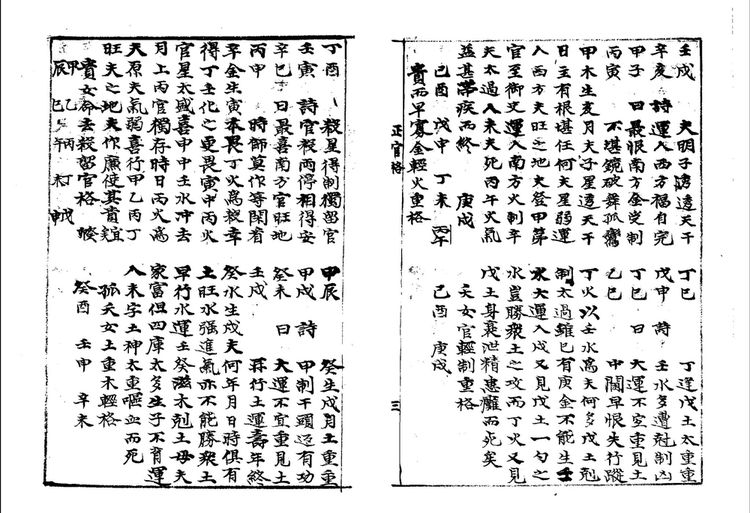 壬戌　夫明子透透天干
辛亥　詩　運入西方福自完
甲子　日　最恨南方金尅制
丙寅　不堪鏡破舞孤鸞
甲木生亥月夫子星透天干
日主有根堪任何夫星弱運
入西方夫旺之地夫登甲第
官至御史運入南方火制辛
夫太過入未夫死丙午火氣
益甚帶疾而終　庚戌
己酉　戊申　丁未　丙午
貴而早寡金輕火重格
丁巳　丁逢戊土太重重
戊申　詩　壬水多遭尅制凶
丁巳　日　大運不宜重見土
乙巳　中閨早恨失行蹤
丁火以壬水為夫何多戊土剋
制太過雖巳有庚金不能生壬
水大運入戌又見戊土一勺之
水豈勝衆土之攻而丁火又見
戊土身衰泄精患癱而死矣
己酉　庚戌
夭女官輕制重格
正官格　三
丁酉　殺星得制獨留官
壬寅　詩　官殺兩停相得安
辛巳　日　最喜南方官旺地
丙申　時師莫作等閑看
辛金生寅本畏丁火為殺幸
得丁壬化之更畏寅申丙火
官星太國喜申中壬水冲去
月上丙官獨存時日丙火為
夫原夫氣弱喜行甲乙丙丁
旺夫之地夫作廉使其貴
貴女命去殺留官格　癸卯
甲辰　乙巳　丙午　丁未　戊申
甲辰　癸生戌月土重重
甲戌　詩　甲制干頭有功
癸未　日　大運不宜重見土
壬戌　行土運壽年終
癸水生戌夫何年月日時俱有
土旺水强進氣亦不能勝衆土
早行水運壬癸滋木剋土母夫
家富但四庫太多生子不育運
入未字土神太重嘔血而死
孤夭女土重木輕格
癸酉　壬申　辛未